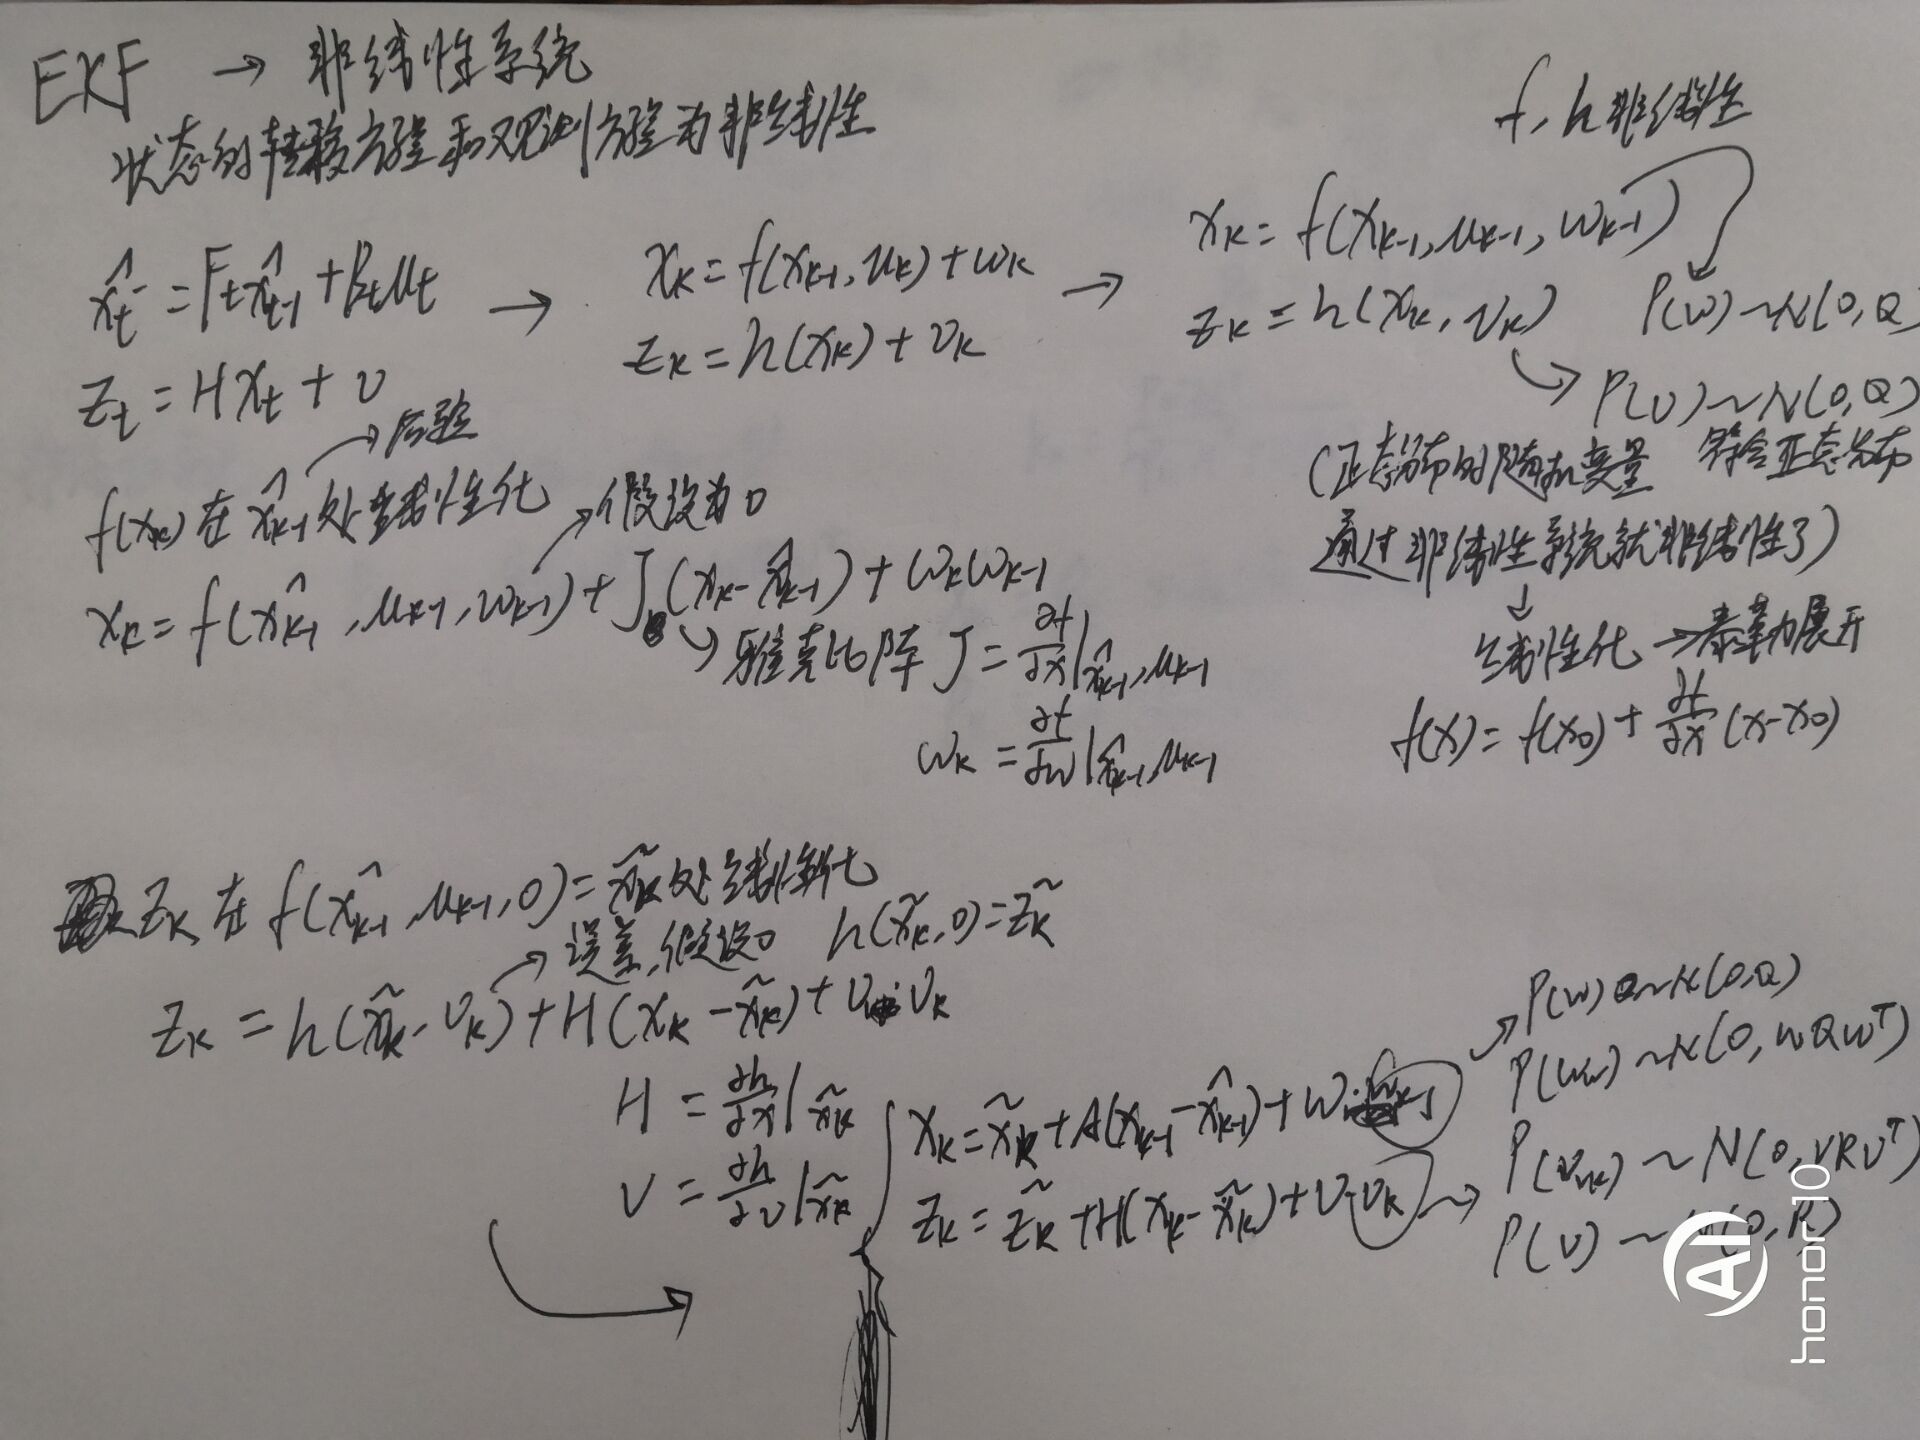 EKF → 非线性系统
状态的转移方程和观测方程为非线性
f, h非线性
x̂ₜ⁻ = Fₜx̂ₜ₋₁ + Bₜuₜ →
zₜ = Hxₜ + v
xₖ = f(xₖ₋₁, uₖ) + wₖ →
zₖ = h(xₖ) + vₖ
xₖ = f(xₖ₋₁, uₖ₋₁, wₖ₋₁)
zₖ = h(xₖ, vₖ) P(w) ~ N(0, Q)
→ P(v) ~ N(0, Q)
符合正态分布
(正态分布的随机变量
通过非线性系统就非线性了)
↓
线性化 → 泰勒展开
f(x) = f(x₀) + ∂f/∂x (x-x₀)
→ 后验
f(xₖ) 在 x̂ₖ₋₁ 处线性化 → 假设为0
xₖ = f(x̂ₖ₋₁, uₖ₋₁, wₖ₋₁) + J (xₖ - x̂ₖ₋₁) + wₖwₖ₋₁
→ 雅克比阵 J = ∂f/∂x | x̂ₖ₋₁, uₖ₋₁
wₖ = ∂f/∂w | x̂ₖ₋₁, uₖ₋₁
zₖ 在 f(x̂ₖ₋₁, uₖ₋₁, 0) = x̃ₖ 处线性化
→ 误差,假设0 h(x̃ₖ, 0) = z̃ₖ
zₖ = h(x̃ₖ - vₖ) + H(xₖ - x̃ₖ) + v vₖ
H = ∂h/∂x | x̃ₖ
V = ∂h/∂v | x̃ₖ
xₖ = x̃ₖ + A(xₖ₋₁ - x̂ₖ₋₁) + w
zₖ = z̃ₖ + H(xₖ - x̃ₖ) + v·vₖ →
P(w) ~ N(0, Q)
~ N(0, wQwᵀ)
~ N(0, VRVᵀ)
P(v) ~ N(0, R)
AI
honor 10